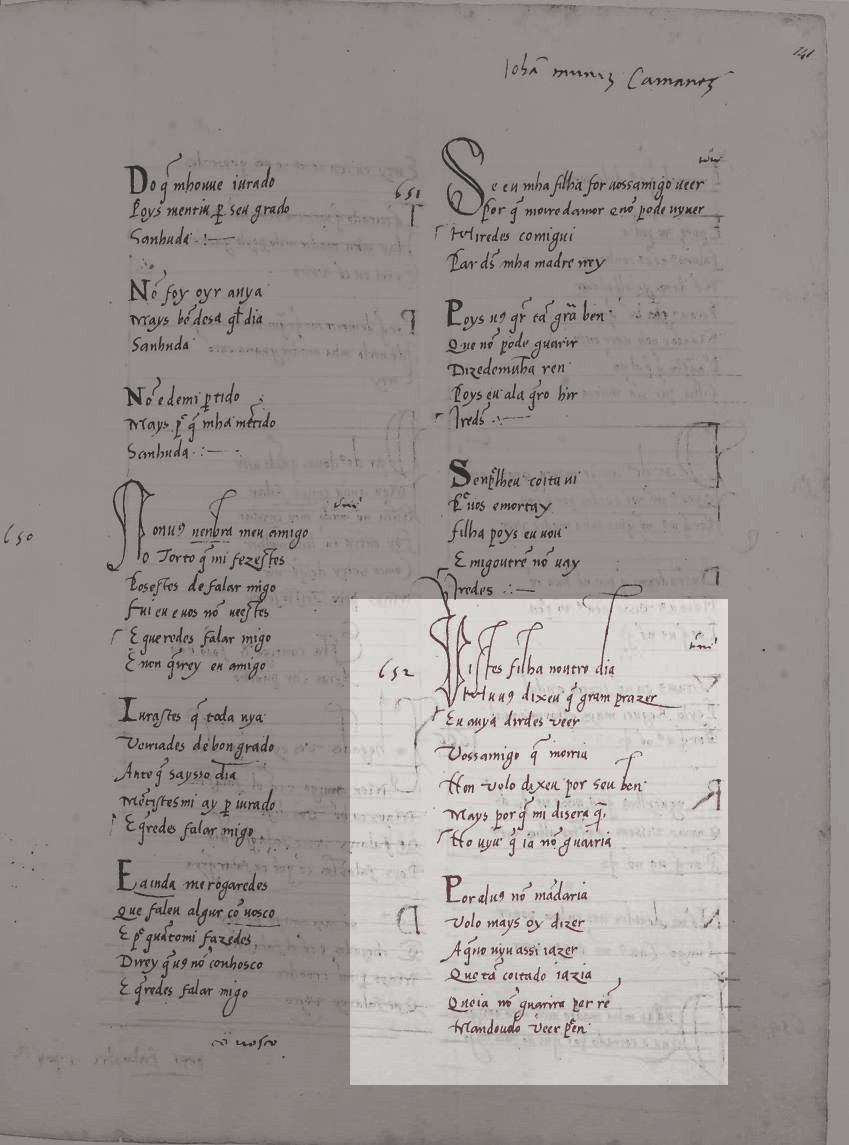 141
Iohã muniz Camanez
Do q̃ mhouue iurado
Poys mentiu p̱ seu grado
Sanhuda
Nõ foy oyr anya
Mays bẽ desa
Sanhuda
Nõ e demi p̱tido
Mays q̃ mha metido
Sanhuda
650
Nonuꝯ nenbra meu amigo
O Torto q̃ mi fezestes
Posestes de falar migo
Fui eu e uos nõ ueestes
E queredes falar migo
E non q̃rrey eu amigo
Iurastes q̃ toda uya
Uerriades de bon grado
Ante q̃ saysso dia
Mẽtistesmi ay p̱iurado
E q̃redes falar migo
E ainda me rogaredes
Que faleu algur cõ uosco
E guãtomi fazedes
Direy q̃ uꝯ nõ conhosco
E q̃redes falar migo
cõ uosco
651
Se eu mha filha for uossamigo ueer
Por q̃ moire damor e nõ pode uyuer
Hiredes comigui
Par dš mha madre irey
Poys uꝯ qr̃ tã grã ben
Que nõ pode guarir
Dizedemunha ren
Poys eu ala q̃ro hir
Iredš
Senp̱lheu coita ui
uos e mortay
Filha poys eu uou
E migoutrẽ nõ uay
Iredes
652
Uistes filha noutro dia
Hu uꝯ dixeu q̃ gram prazer
Eu auya dirdes veer
Uossamigo q̃ morria
Non uolo dixeu por seu ben
Mays por q̃ mi disera q̃
Ho uyu q̃ ia nõ guairia
Por al uꝯ nõ mãdaria
Uolo mays oy dizer
A q̃no uyu assi iazer
Que tã coitado iazia
Que ia nõ guarira per rẽ
Mandouolo veer